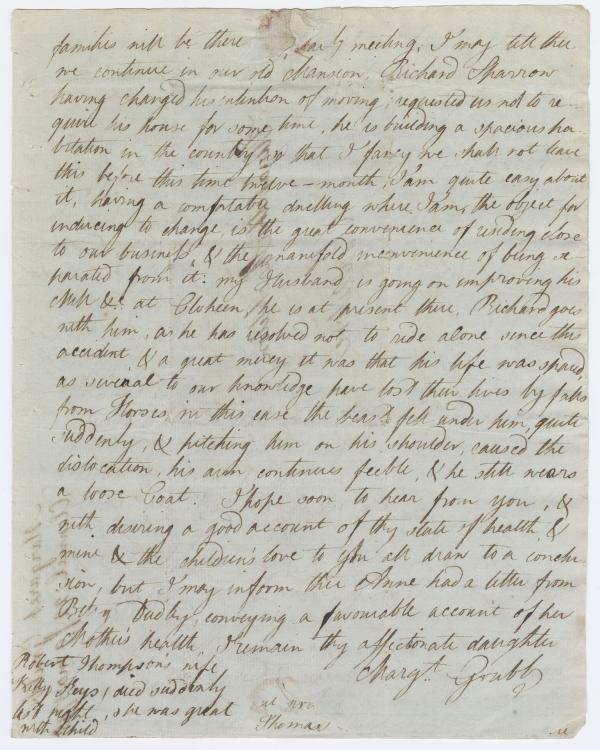 families will be there early meeting, I may tell thee
we continue in our old Mansion, Richard Sparrow
having changed his intention of moving, requested us not to re-
quire his house for some time, he is building a spacious ha-
bitation in the country, so that I fancy we shall not leave
this before this time twelve-month, I am quite easy about
it, having a comfortable dwelling where I am, the object for
inducing to change, is the great convenience of residing close
to our business, & the manifold inconvenience of being se-
parated from it: my Husband is going on improving his
Mill &c at Cloheen, he is at present there, Richard goes
with him, as he has resolved not to ride alone since this
accident, & a great mercy it was that his life was spared,
as several to our knowledge have lost their lives by falls
from Horses, in this case the beast fell under him, quite
suddenly, & pitching him on his shoulder, caused the
dislocation, his arm continues feeble, & he still wears
a loose Coat. I hope soon to hear from you, &
with desiring a good account of thy state of health, &
mine & the children's love to you all draw to a conclu-
sion, but I may inform thee Anne had a letter from
Betsy Dudley, conveying a favourable account of her
Mother's health, I remain thy affectionate daughter
Margt. Grubb
Robert Thompson's wife
Kitty Keys, died suddenly
last night, she was great
with child
Thomas